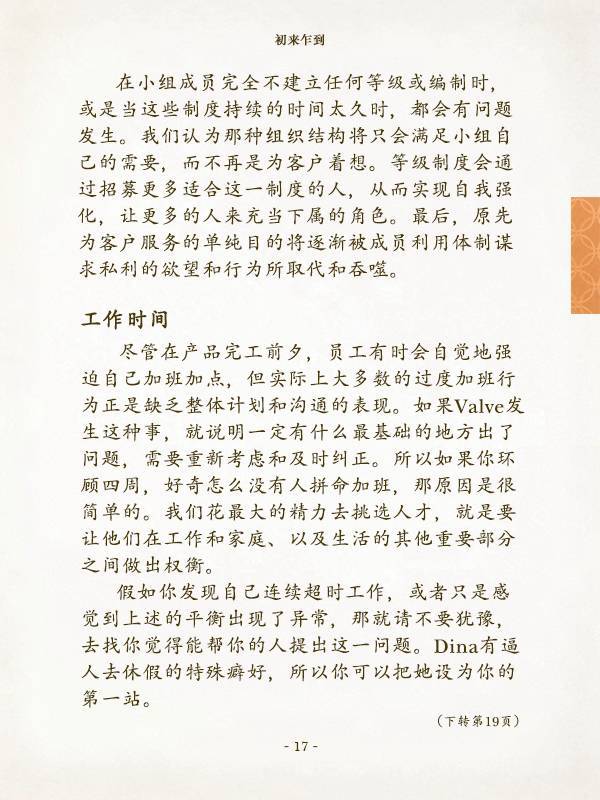 初来乍到
在小组成员完全不建立任何等级或编制时，
或是当这些制度持续的时间太久时，都会有问题
发生。我们认为那种组织结构将只会满足小组自
己的需要，而不再是为客户着想。等级制度会通
过招募更多适合这一制度的人，从而实现自我强
化，让更多的人来充当下属的角色。最后，原先
为客户服务的单纯目的将逐渐被成员利用体制谋
求私利的欲望和行为所取代和吞噬。
工作时间
尽管在产品完工前夕，员工有时会自觉地强
迫自己加班加点，但实际上大多数的过度加班行
为正是缺乏整体计划和沟通的表现。如果Valve发
生这种事，就说明一定有什么最基础的地方出了
问题，需要重新考虑和及时纠正。所以如果你环
顾四周，好奇怎么没有人拼命加班，那原因是很
简单的。我们花最大的精力去挑选人才，就是要
让他们在工作和家庭、以及生活的其他重要部分
之间做出权衡。
假如你发现自己连续超时工作，或者只是感
觉到上述的平衡出现了异常，那就请不要犹豫，
去找你觉得能帮你的人提出这一问题。Dina有逼
人去休假的特殊癖好，所以你可以把她设为你的
第一站。
（下转第19页）
- 17 -